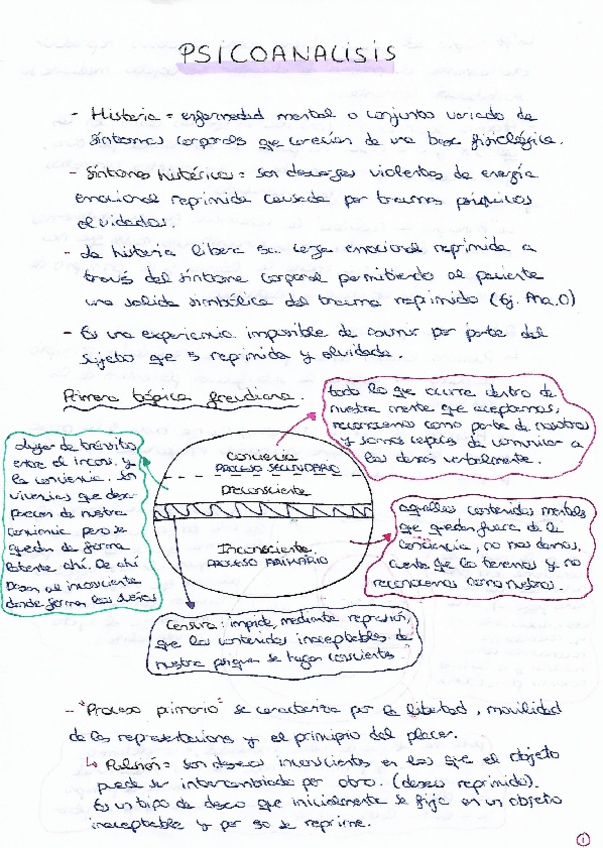 PSICOANALISIS
- Histeria = enfermedad mental o conjunto variado de
síntomas corporales que carecían de una base fisiológica.
- Síntomas histéricos = son descargas violentas de energía
emocional reprimida causada por traumas psíquicos
olvidados.
- La histeria libera su carga emocional reprimida a
través del síntoma corporal permitiendo al paciente
una salida simbólica del trauma reprimido (Ej. Ana.O)
- Es una experiencia imposible de asumir por parte del
sujeto que es reprimida y olvidada.
Primera tópica freudiana.
todo lo que ocurre dentro de
nuestra mente que aceptamos,
reconocemos como parte de nosotros
y somos capaces de comunicar a
los demás verbalmente.
Lugar de tránsito
entre el incons. y
la conciencia. Son
vivencias que desa-
parecen de nuestra
conciencia pero se
quedan de forma
latente ahí. De ahí
pasan al inconsciente
donde forman los sueños
Conciencia
PROCESO SECUNDARIO
Preconsciente
Inconsciente
PROCESO PRIMARIO
aquellos contenidos mentales
que quedan fuera de la
conciencia, no nos damos
cuenta que los tenemos y no
reconocemos como nuestros.
Censura: impide, mediante represión,
que los contenidos inaceptables de
nuestra psique se hagan conscientes
- "Proceso primario" se caracteriza por la libertad, movilidad
de las representaciones y el principio del placer.
↳ Pulsión = son deseos inconscientes en los que el objeto
puede ser intercambiado por otro. (deseo reprimido).
Es un tipo de deseo que inicialmente se fija en un objeto
inaceptable y por eso se reprime.
1